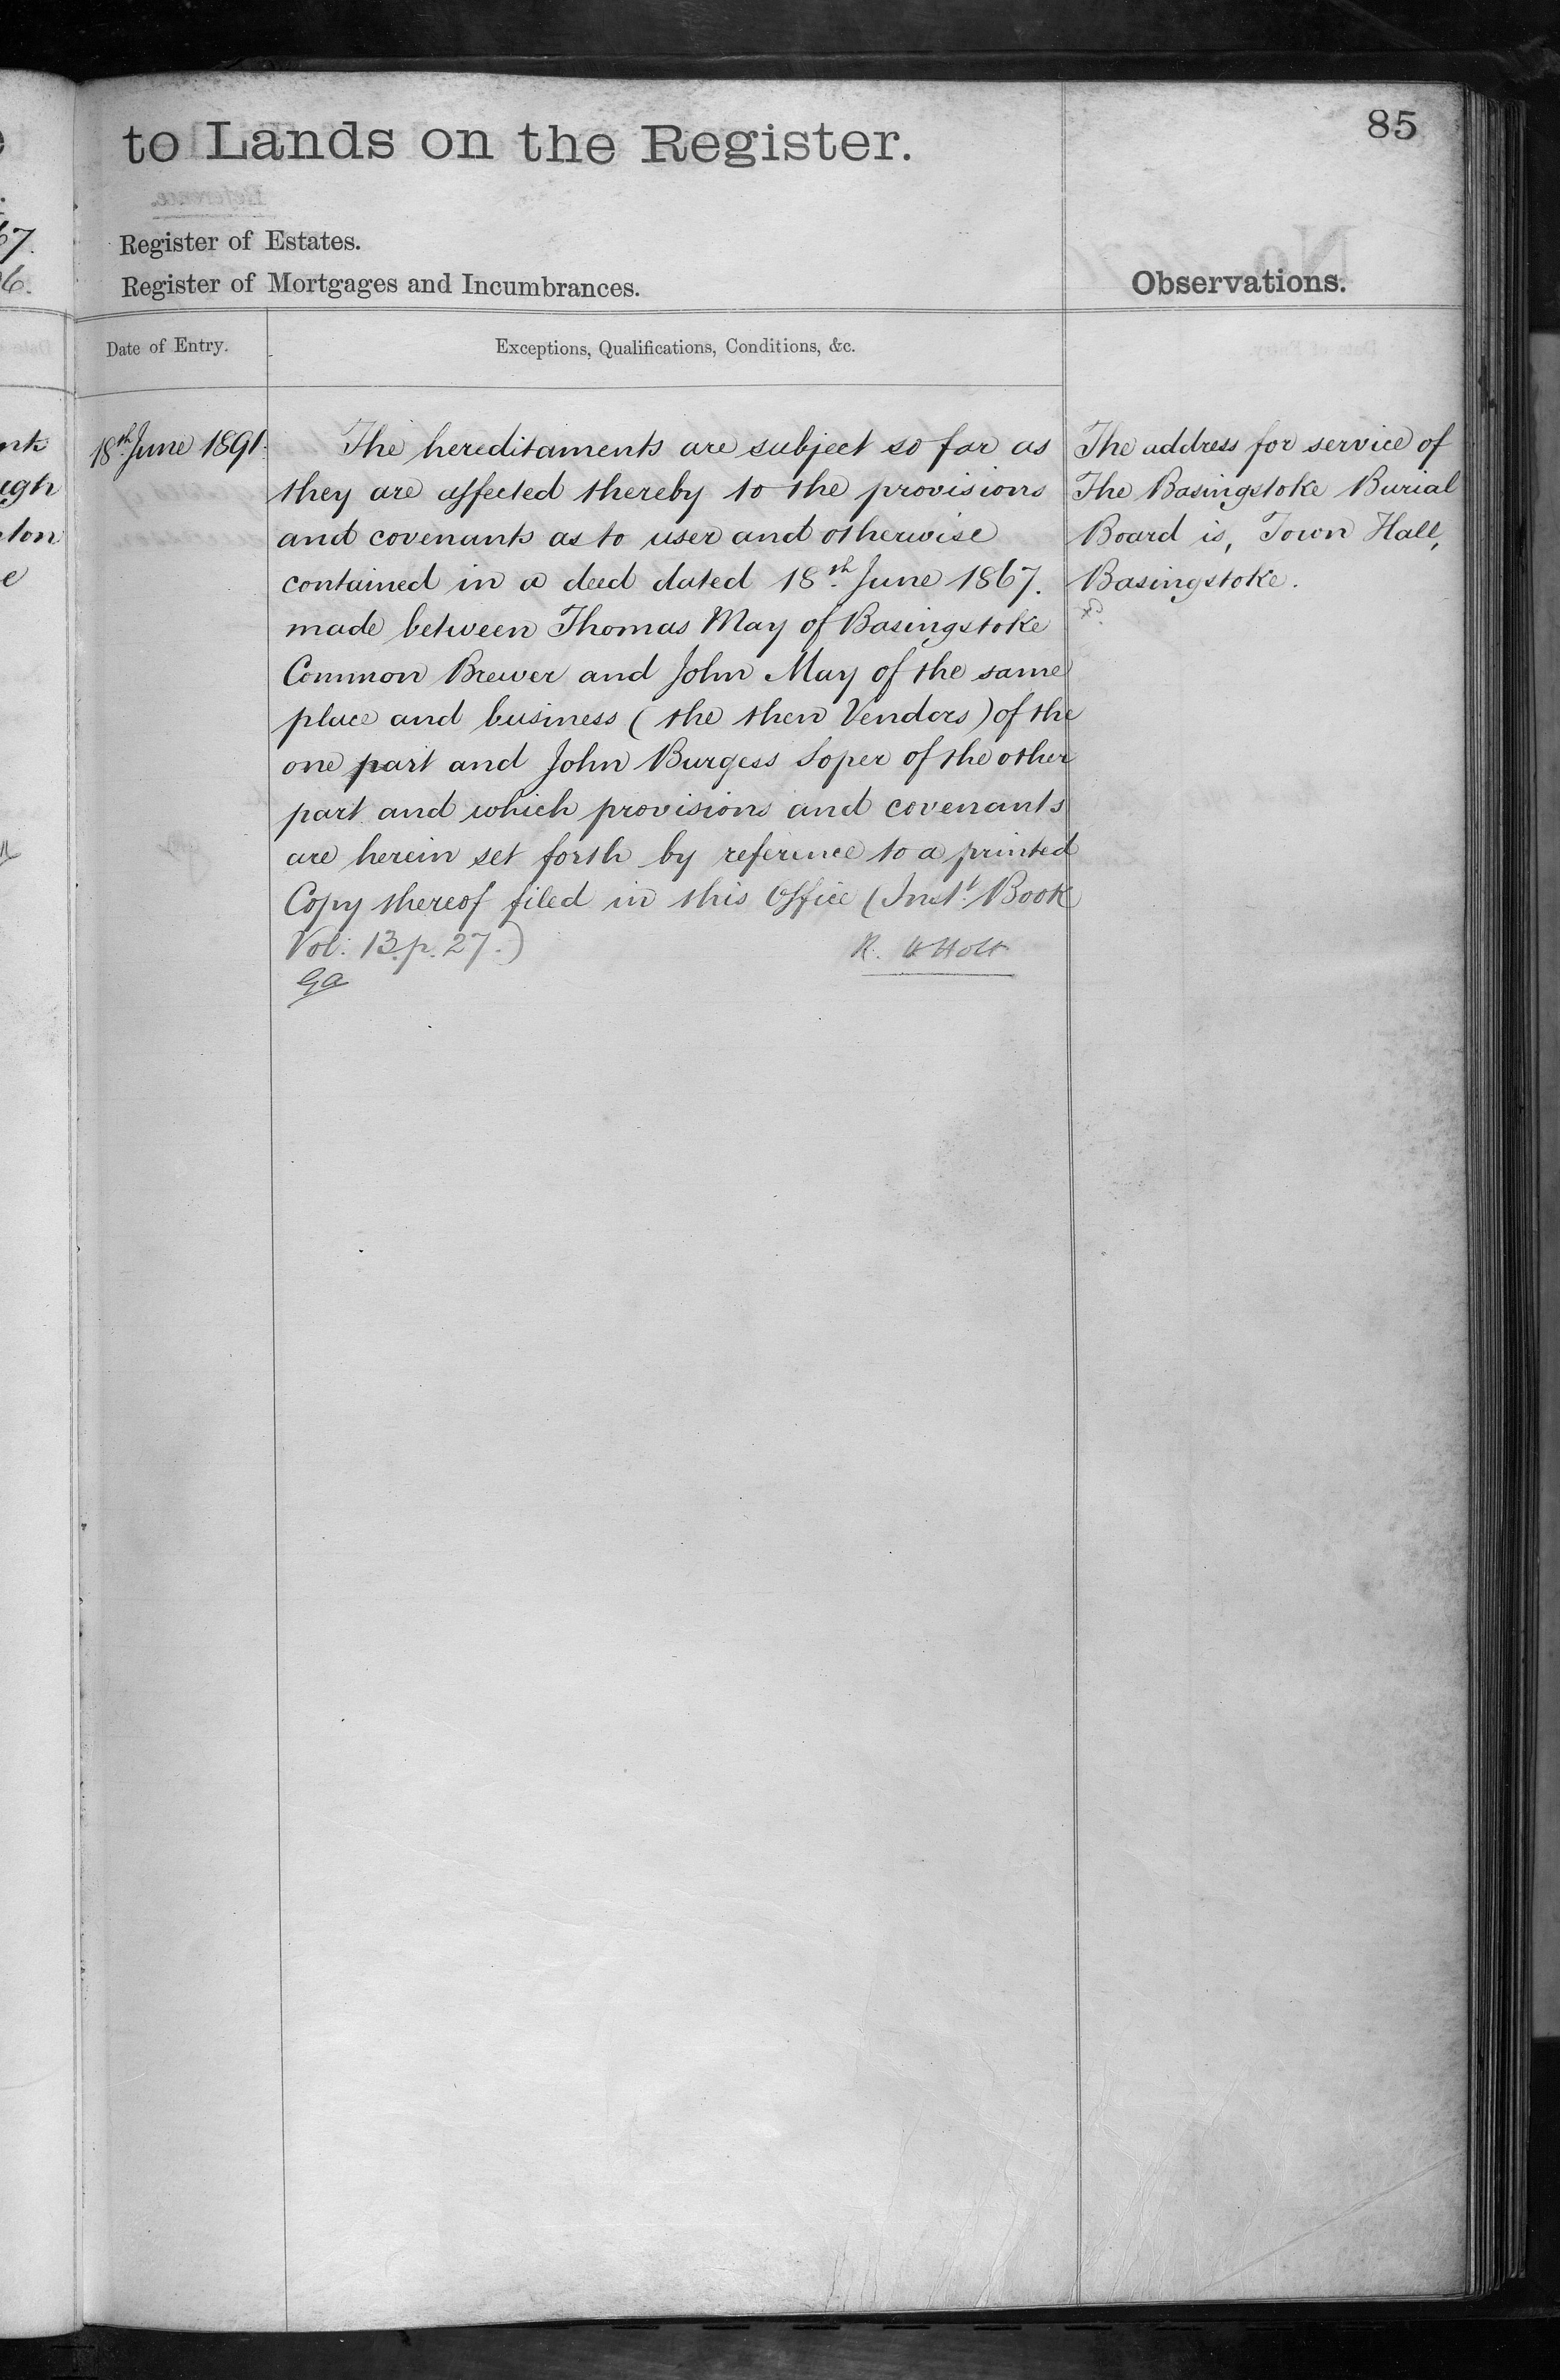 85
to Lands on the Register.
Register of Estates.
Register of Mortgages and Incumbrances.
Observations.
Date of Entry.
Exceptions, Qualifications, Conditions, &c.
18th June 1891.
The hereditaments are subject so far as
they are affected thereby to the provisions
and covenants as to user and otherwise
contained in a deed dated 18th June 1867.
made between Thomas May of Basingstoke
Common Brewer and John May of the same
place and business (the then Vendors) of the
one part and John Burgess Soper of the other
part and which provisions and covenants
are herein set forth by reference to a printed
Copy thereof filed in this Office (Inst. Book
Vol: 13. p. 27.)
R. Holt
Ga
The address for service of
The Basingstoke Burial
Board is, Town Hall,
Basingstoke.